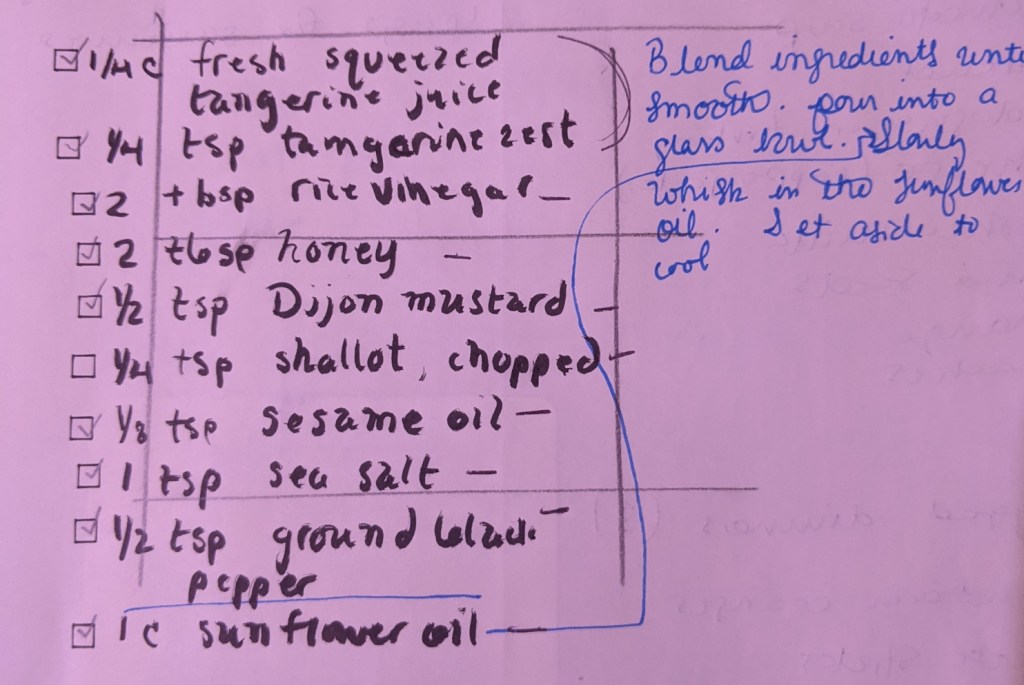 1/4 c fresh squeezed
tangerine juice
1/4 tsp tamgarine zest
2 tbsp rice vinegar –
2 tbsp honey –
1/2 tsp Dijon mustard –
1/4 tsp shallot, chopped –
1/8 tsp sesame oil –
1 tsp sea salt –
1/2 tsp ground black –
pepper
1 c sunflower oil –
Blend ingredients unti
smooth. pour into a
glass bowl. Slowly
whisk in the sunflower
oil. Set aside to
cool